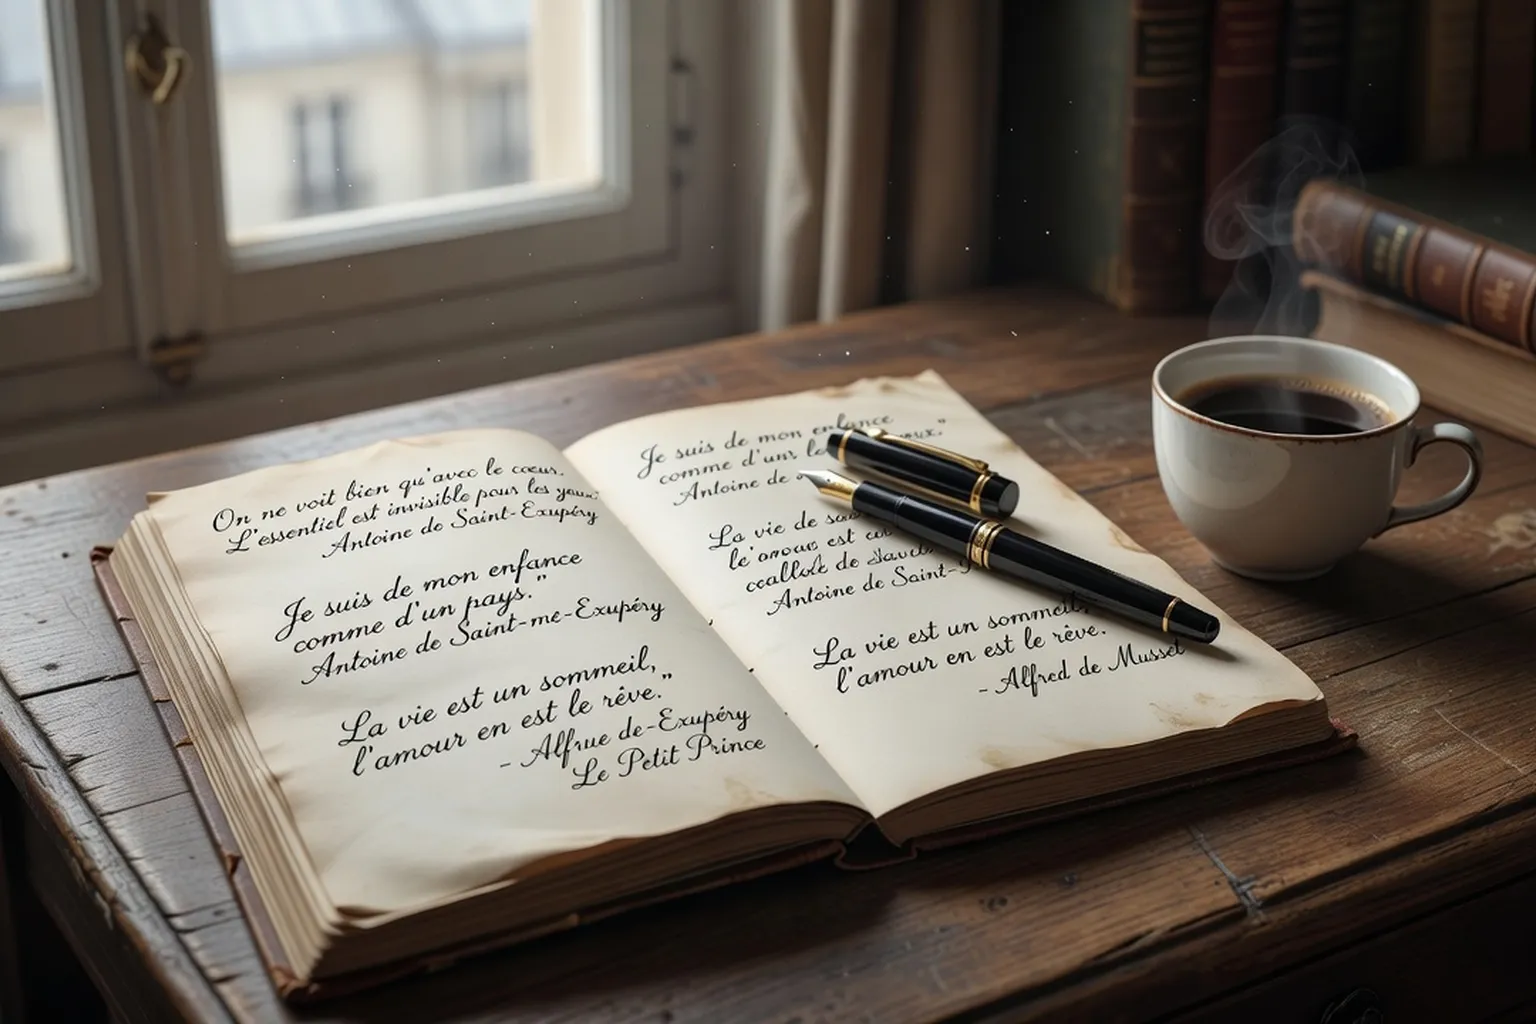 On ne voit bien qu'avec le cœur.
L'essentiel est invisible pour les yeux.
Antoine de Saint-Exupéry
Je suis de mon enfance
comme d'un pays."
Antoine de Saint-me-Exupéry
La vie est un sommeil,
l'amour en est le rêve."
- Alfrue de-Exupéry
Le Petit Prince
Je suis de mon enfance
comme d'un
Antoine de
La vie de
l'amour est
de
Antoine de Saint-
La vie est un sommeil,
l'amour en est le rêve."
- Alfred de Musset